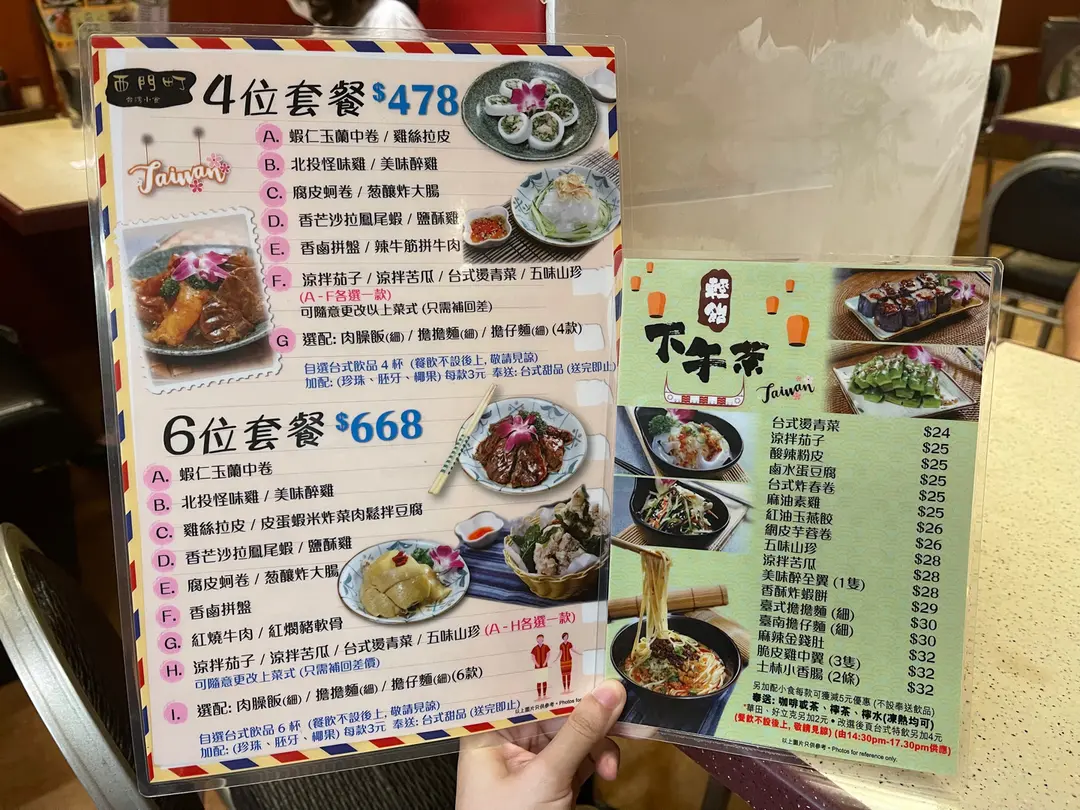 西門町
台灣小食
4位套餐 $478
Taiwan
A. 蝦仁玉蘭中卷 / 雞絲拉皮
B. 北投怪味雞 / 美味醉雞
C. 腐皮蚵卷 / 葱釀炸大腸
D. 香芒沙拉鳳尾蝦 / 鹽酥雞
E. 香鹵拼盤 / 辣牛筋拼牛肉
F. 涼拌茄子 / 涼拌苦瓜 / 台式燙青菜 / 五味山珍
(A - F各選一款)
可隨意更改以上菜式 (只需補回差)
G 選配: 肉臊飯(細) / 擔擔麵(細) / 擔仔麵(細) (4款)
自選台式飲品 4 杯 (餐飲不設後上, 敬請見諒)
加配: (珍珠、胚牙、椰果) 每款3元 奉送: 台式甜品 (送完即止)
6位套餐 $668
A. 蝦仁玉蘭中卷
B. 北投怪味雞 / 美味醉雞
C. 雞絲拉皮 / 皮蛋蝦米炸菜肉鬆拌豆腐
D. 香芒沙拉鳳尾蝦 / 鹽酥雞
E. 腐皮蚵卷 / 葱釀炸大腸
F. 香鹵拼盤
G. 紅燒牛肉 / 紅燜豬軟骨
H. 涼拌茄子 / 涼拌苦瓜 / 台式燙青菜 / 五味山珍 (A - H各選一款)
可隨意更改上菜式 (只需補回差價)
I. 選配: 肉臊飯(細) / 擔擔麵(細) / 擔仔麵(細)(6款)
自選台式飲品 6 杯 (餐飲不設後上, 敬請見諒)
加配: (珍珠、胚牙、椰果) 每款3元 奉送: 台式甜品 (送完即止)
以上圖片只供參考 • Photos for
輕鬆
下午茶
Taiwan
台式燙青菜 $24
涼拌茄子 $25
酸辣粉皮 $25
鹵水蛋豆腐 $25
台式炸春卷 $25
麻油素雞 $25
紅油玉燕餃 $26
網皮芋蓉卷 $26
五味山珍 $28
涼拌苦瓜 $28
美味醉全翼 (1隻) $28
香酥炸蝦餅 $29
臺式擔擔麵 (細) $30
臺南擔仔麵 (細) $30
麻辣金錢肚 $32
脆皮雞中翼 (3隻) $32
士林小香腸 (2條) $32
另加配小食每款可獲減5元優惠 (不設奉送飲品)
奉送: 咖啡或茶、檸茶、檸水(凍熱均可)
*華田、好立克另加2元 • 改選後頁台式特飲另加4元
(餐飲不設後上, 敬請見諒) (由14:30pm-17.30pm供應)
以上圖片只供參考 • Photos for reference only.